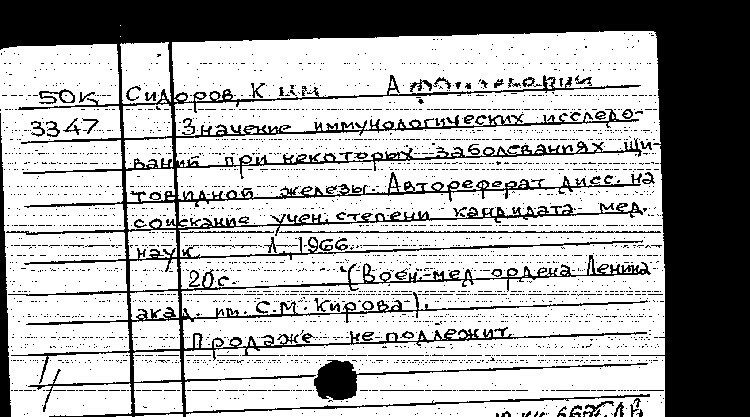 50к Сидоров, Ким
3347 Значение иммунологических исследо-
ваний при некоторых заболеваниях щи-
товидной железы. Автореферат дисс. на
соискание учен. степени кандидата мед.
наук Л., 1966.
20с. (Воен.-мед ордена Ленина
акад. им. С.М. Кирова).
Продаже не подлежит.